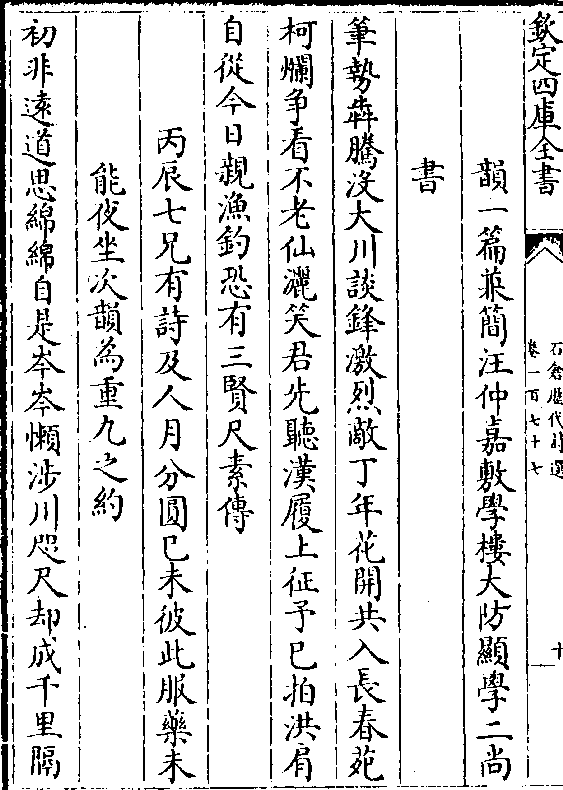 欽定四庫全書
石倉歷代詩選
卷一百七十七
十
韻一篇兼簡汪仲嘉敷學樓大防顯學二尚
書
筆勢犇騰沒大川談鋒激烈敵丁年花開共入長春苑
柯爛爭看不老仙灑笑君先聽漢履上征予已拍洪肩
自從今日親漁釣恐有三賢尺素傳
丙辰七兄有詩及人月分圓巳未彼此服藥未
能夜坐次韻為重九之約
初非遠道思綿綿自是岑岑懶涉川咫尺却成千里膈